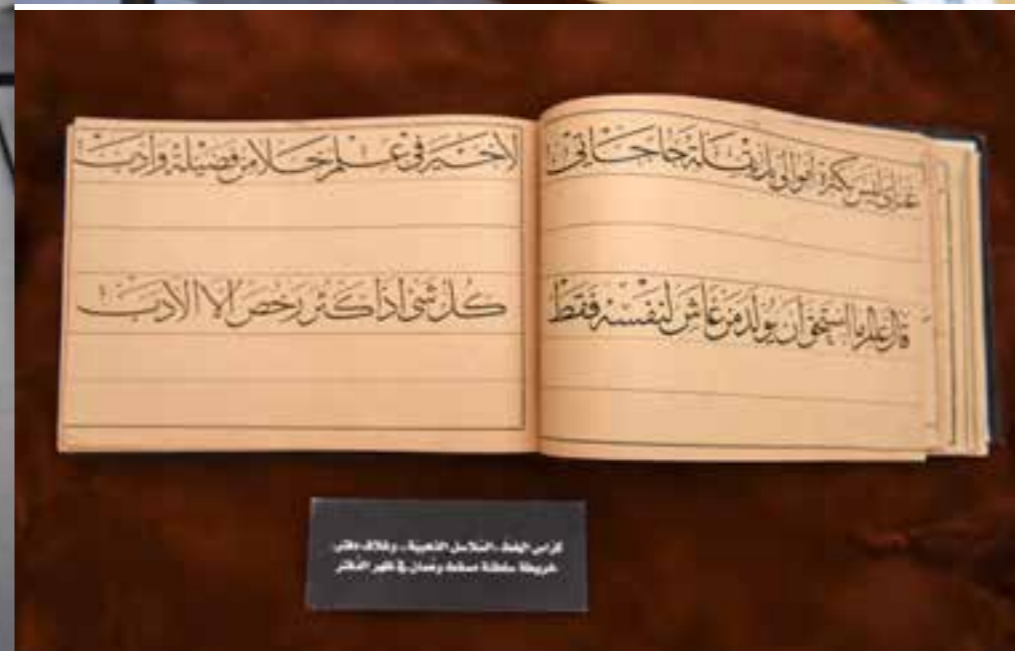 ليس بكثرة اموالي بل بقلة حاجاتي
ما استحق أن يولد من عاش لنفسه فقط
لاخير في علم خلا من فضيلة وأدب
كل شئ اذا كثر رخص الا الادب
كراس الخط - السلاسل الذهبية - وغلاف
خريطة سلطنة مسقط وعمان في ظهر الدفتر